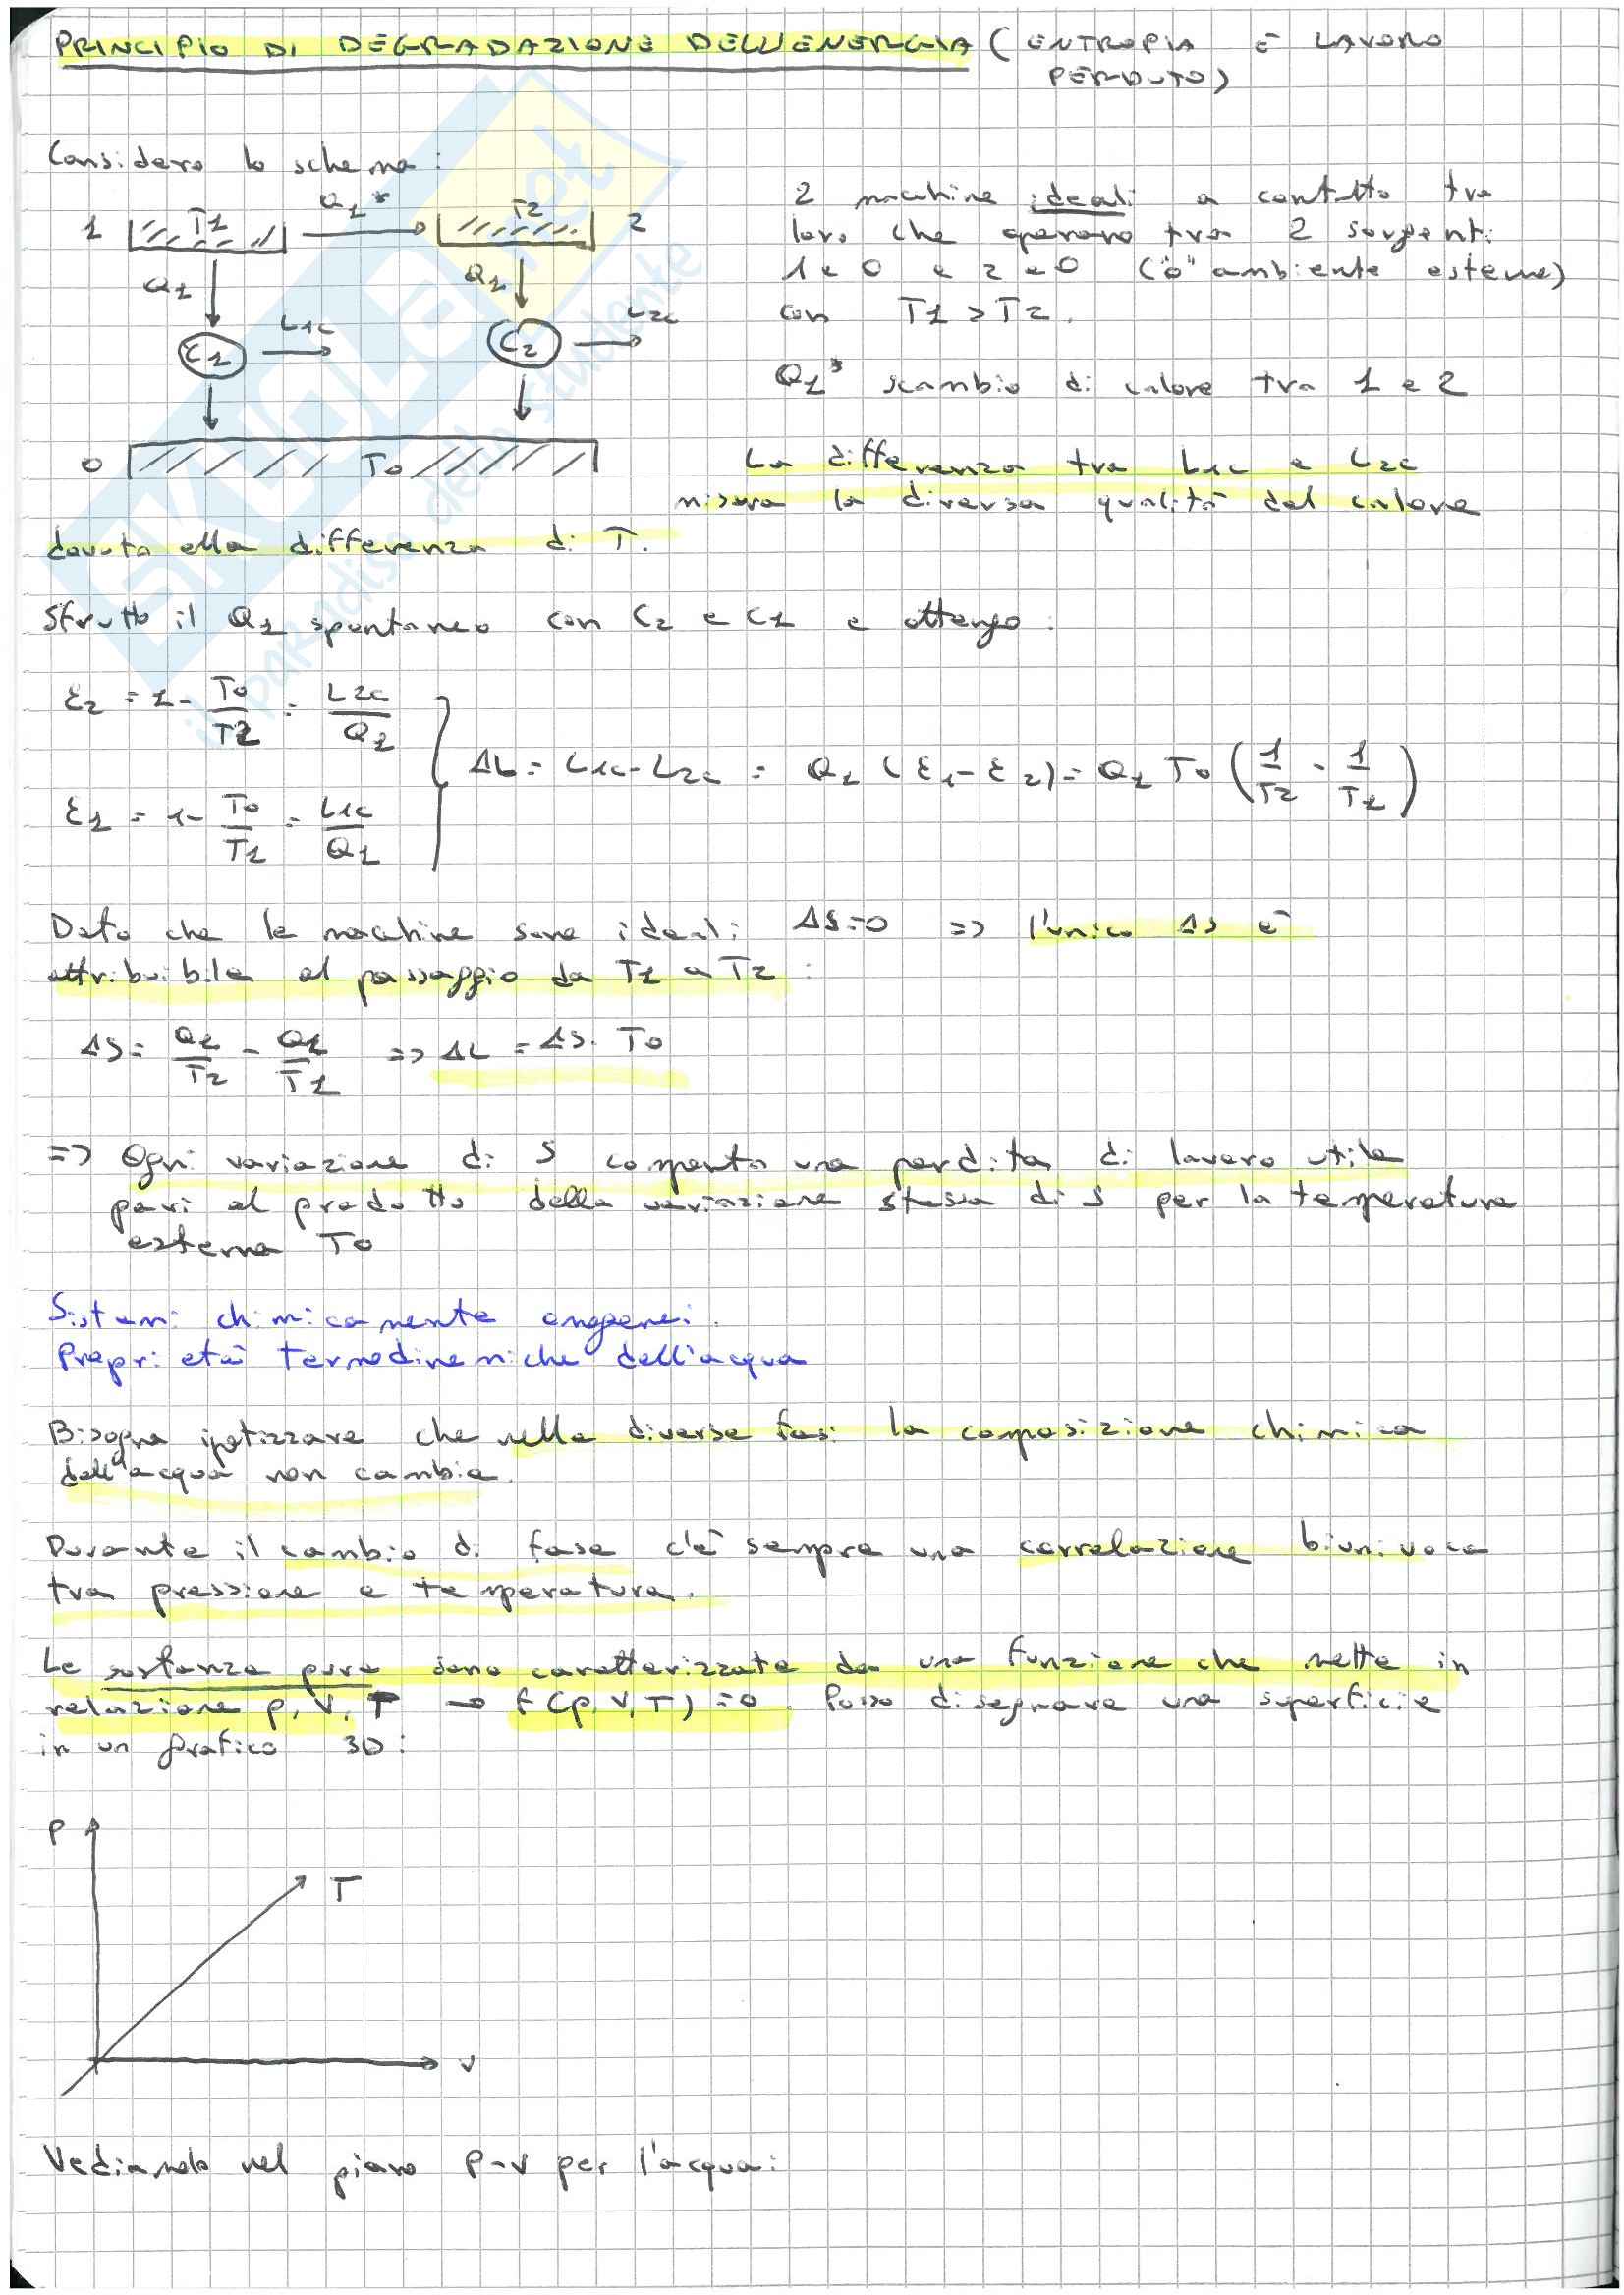 PRINCIPIO DI DEGRADAZIONE DELL'ENERGIA (ENTROPIA E LAVORO
PERDUTO)
Considero lo schema:
1 T1 Q1* T2 2
Q1 Q1
C1 L1c C2 L2c
0 T0
2 macchine ideali a contatto tra
loro che operano tra 2 sorgenti
1 e 0 e 2 e 0 ("0" ambiente esterno)
con T1 > T2.
Q1* scambio di calore tra 1 e 2
La differenza tra L1c e L2c
misura la diversa qualità del calore
dovuta alla differenza di T.
Sfrutto il Q1 spontaneo con C2 e C1 e ottengo:
ε2 = 1 - T0/T2 = L2c/Q1
ε1 = 1 - T0/T1 = L1c/Q1
ΔL = L1c - L2c = Q1 (ε1 - ε2) = Q1 T0 (1/T2 - 1/T1)
Dato che le macchine sono ideali ΔS=0 => l'unico ΔS è
attribuibile al passaggio da T1 a T2:
ΔS = Q1/T2 - Q1/T1 => ΔL = ΔS · T0
=> Ogni variazione di S comporta una perdita di lavoro utile
pari al prodotto della variazione stessa di S per la temperatura
esterna T0
Sistemi chimicamente omogenei.
Proprietà termodinamiche dell'acqua
Bisogna ipotizzare che nelle diverse fasi la composizione chimica
dell'acqua non cambia.
Durante il cambio di fase c'è sempre una correlazione biunivoca
tra pressione e temperatura.
Le sostanze pure sono caratterizzate da una funzione che mette in
relazione p, V, T → f(p, V, T) = 0. Posso disegnare una superficie
in un grafico 3D:
P
T
V
Vediamolo nel piano P-V per l'acqua:
SKUOLA.net
il paradiso dello studente